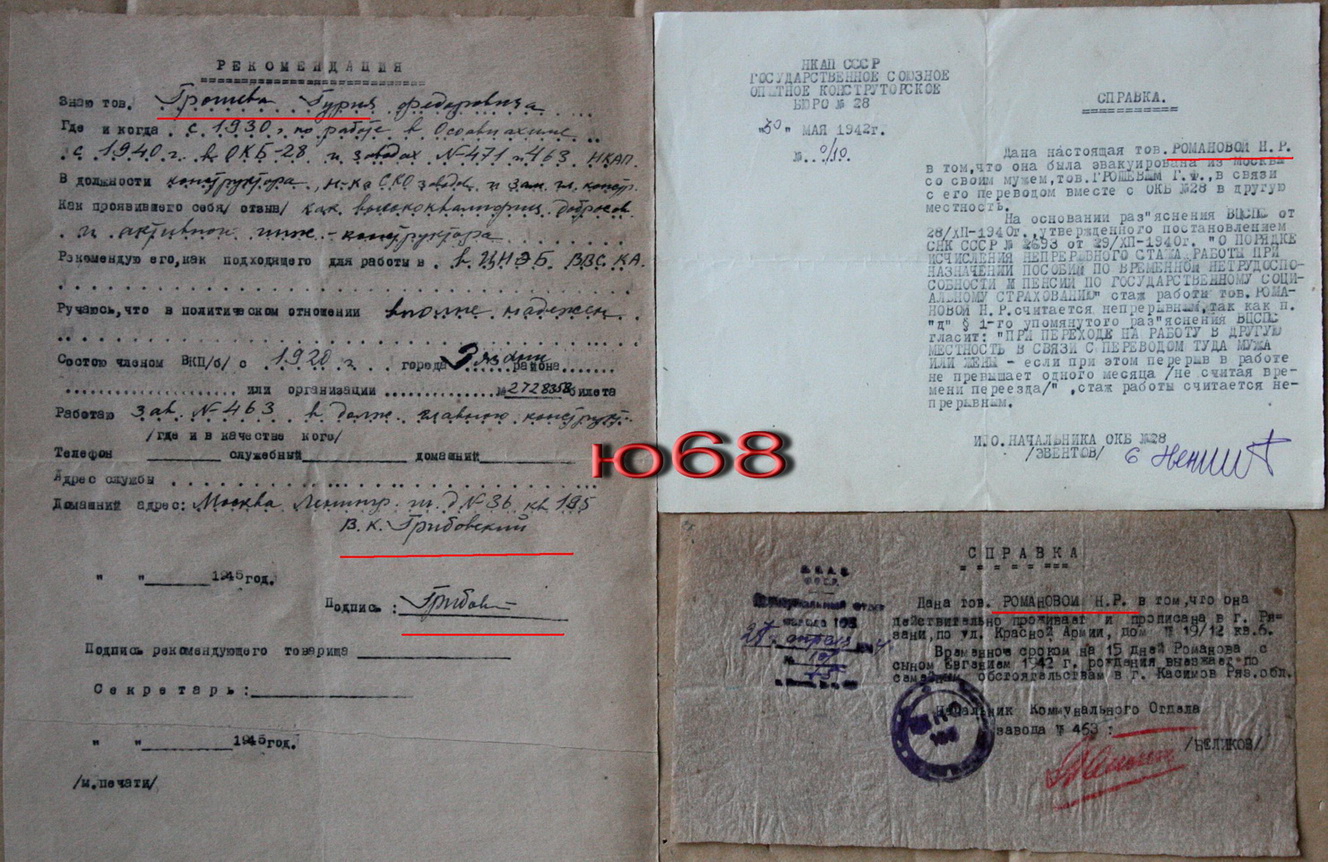 РЕКОМЕНДАЦИЯ
Знаю тов. Грошева Гурия Федоровича
Где и когда с 1930 г. по работе в Осоавиахиме
с 1940 г. в ОКБ-28 и заводах №471 и 463 НКАП.
В должности конструктора, н-ка СКО завода и зам. гл. констр.
Как проявившего себя/ отзыв/ как высококвалифиц. добросов.
и активного инж.-конструктора
Рекомендую его, как подходящего для работы в ЦНЭБ ВВС КА.
Ручаюсь, что в политическом отношении вполне надежен
Состою членом ВКП/б/ с 1920 г. города Рязани района
или организации №2728358 билета
Работаю зав. №463 в долж. главного конструкт.
/где и в качестве кого/
Телефон служебный домашний
Адрес службы
Домашний адрес: Москва Ленингр. ш. д №36 кв 195
В. К. Грибовский
" " 1945 год.
Подпись:
Подпись рекомендующего товарища
Секретарь:
" " 1945 год.
/м.печати/
НКАП СССР
ГОСУДАРСТВЕННОЕ СОЮЗНОЕ
ОПЫТНОЕ КОНСТРУКТОРСКОЕ
БЮРО № 28
"30" МАЯ 1942г.
№
СПРАВКА.
Дана настоящая тов. РОМАНОВОЙ Н.Р.
в том, что она была эвакуирована из Москвы
со своим мужем, тов. ГРОШЕВЫМ Г.Ф., в связи
с его переводом вместе с ОКБ №28 в другую
местность.
На основании раз"яснения ВЦСПС от
28/XII-1940г., утвержденного постановлением
СНК СССР № 2693 от 29/XII-1940г. "О ПОРЯДКЕ
ИСЧИСЛЕНИЯ НЕПРЕРЫВНОГО СТАЖА РАБОТЫ ПРИ
НАЗНАЧЕНИИ ПОСОБИЙ ПО ВРЕМЕННОЙ НЕТРУДОСПО-
СОБНОСТИ И ПЕНСИИ ПО ГОСУДАРСТВЕННОМУ СОЦИ-
АЛЬНОМУ СТРАХОВАНИЮ" стаж работы тов. РОМА-
НОВОЙ Н.Р. считается непрерывным, так как п.
"д" § 1-го упомянутого раз"яснения ВЦСПС
гласит: "ПРИ ПЕРЕХОДЕ НА РАБОТУ В ДРУГУЮ
МЕСТНОСТЬ В СВЯЗИ С ПЕРЕВОДОМ ТУДА МУЖА
ИЛИ ЖЕНЫ - если при этом перерыв в работе
не превышает одного месяца /не считая вре-
мени переезда/", стаж работы считается не-
прерывным.
И.О. НАЧАЛЬНИКА ОКБ №28
/ЭВЕНТОВ/
ю68
СПРАВКА
Дана тов. РОМАНОВОЙ Н.Р. в том, что она
действительно проживает и прописана в г. Ря-
зани, по ул. Красной Армии, дом № 19/12 кв.6.
Временно сроком на 15 дней Романова с
сыном Евгением 1942 г. рождения выезжает по
семейным обстоятельствам в г. Касимов Ряз.обл.
Начальник Коммунального Отдела
завода № 463:
/ВЕЛИКОВ/